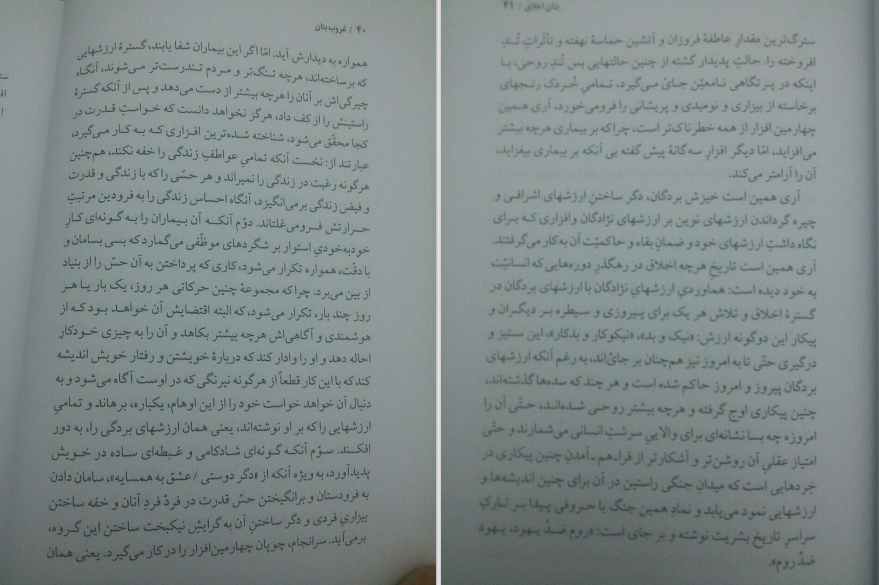 ۴۰ / غروب بتان
همواره به دیدارش آید. امّا اگر این بیماران شفا یابند، گسترهٔ ارزشهایی
که برساخته‌اند، هرچه تنگ‌تر و مردم تندرست‌تر می‌شوند، آنگاه
چیرگی‌اش بر آنان را هرچه بیشتر از دست می‌دهد و پس از آنکه گسترهٔ
راستینش را از کف داد، هرگز نخواهد دانست که خواستِ قدرت در
کجا محقّق می‌شود، شناخته شده‌ترین افزاری که به کار می‌گیرد،
عبارتند از: نخست آنکه تمامیِ عواطفِ زندگی را خفه نکند، هم‌چنین
هرگونه رغبت در زندگی را نمیراند و هر حسّی را که با زندگی و قدرت
و فیض زندگی برمی‌انگیزد، آنگاه احساس زندگی را به فرودین مرتبتِ
حرارتش فرومی‌غلتاند. دوّم آنکه آن بیماران را به گونه‌ای کارِ
خودبه‌خودیِ استوار بر شگردهای موظّفی می‌گمارد که بسی بسامان و
با دقّت، همواره تکرار می‌شود، کاری که پرداختن به آن حسّ را از بنیاد
از بین می‌برد. چرا که مجموعهٔ چنین حرکاتی هر روز، یک بار یا هر
روز چند بار، تکرار می‌شود، که البته اقتضایش آن خواهد بود که از
هوشمندی و آگاهی‌اش هرچه بیشتر بکاهد و آن را به چیزی خودکار
احاله دهد و او را وادار کند که دربارهٔ خویشتن و رفتار خویش اندیشه
کند که با این کار قطعاً از هرگونه نیرنگی که در اوست آگاه می‌شود و به
دنبال آن خواهد خواست خود را از این اوهام، یکباره، برهاند و تمامیِ
ارزشهایی را که بر او نوشته‌اند، یعنی همان ارزشهای بردگی را، به دور
افکند. سوّم آنکه گونه‌ای شادکامی و غبطه‌ای ساده در خویش
پدیدآورد، به ویژه آنکه از «دگر دوستی / عشق به همسایه»، سامان دادن
به فرودستان و برانگیختن حسّ قدرت در فردْ فردِ آنان و خفه ساختن
بیزاریِ فردی و دگر ساختنِ آن به گرایشِ نیکبخت ساختن این گروه،
برمی‌آید. سرانجام، چوپان چهارمین‌افزار را در کار می‌گیرد. یعنی همان
بتان اخلاق / ۴۱
سترگ‌ترین مقدارِ عاطفهٔ فروزان و آتشین حماسهٔ نهفته و تأثّراتِ تُندِ
افروخته را. حالتِ پدیدار گشته از چنین حالتهایی بس تُندِ روحی، با
اینکه در پرتگاهی نامعیّن جایْ می‌گیرد، تمامیِ خُردک رنجهای
برخاسته از بیزاری و نومیدی و پریشانی را فرومی‌خورد، آری همین
چهارمین افزار از همه خطرناک‌تر است، چراکه بر بیماری هرچه بیشتر
می‌افزاید، امّا دیگر افزارِ سه‌گانهٔ پیش گفته بی آنکه بر بیماری بیفزاید،
آن را آرامتر می‌کند.
آری همین است خیزش بردگان، دگر ساختنِ ارزشهای اشرافی و
چیره گرداندن ارزشهای نوین بر ارزشهای نژادگان وافزاری که برای
نگاه داشتِ ارزشهای خود و ضمانِ بقاء و حاکمیّت آن به‌کار می‌گرفتند.
آری همین است تاریخِ هرچه اخلاق در رهگذرِ دوره‌هایی که انسانیّت
به خود دیده است: هماوردیِ ارزشهایِ نژادگان با ارزشهای بردگان در
گسترهٔ اخلاق و تلاش هر یک برای پیروزی و سیطره بر دیگران و
پیکار این دوگونه ارزش: «نیک و بد»، «نیکوکار و بدکار»، این ستیز و
درگیری حتّی تا به امروز نیز هم‌چنان بر جایْ‌اند، به رغم آنکه ارزشهای
بردگان پیروز و امروز حاکم شده است و هر چند که سده‌ها گذشته‌اند،
چنین پیکاری اوج گرفته و هرچه بیشتر روحی شده‌اند، حتّی آن را
امروزه چه بسا نشانه‌ای برای والاییِ سرشتِ انسانی می‌شمارند و حتّی
امتیاز عقلیِ آن روشن‌تر و آشکارتر از فراهم‌ـ‌آمدنِ چنین پیکاری در
خِردهایی است که میدانِ جنگی راستین در آن برای چنین اندیشه‌ها و
ارزشهایی نمود می‌یابد و نمادِ همین جنگ با حروفی پیدا بر تارکِ
سراسرِ تاریخ بشریت نوشته و بر جای است: «روم ضدُّ یهود، یهود
ضدُّ روم».